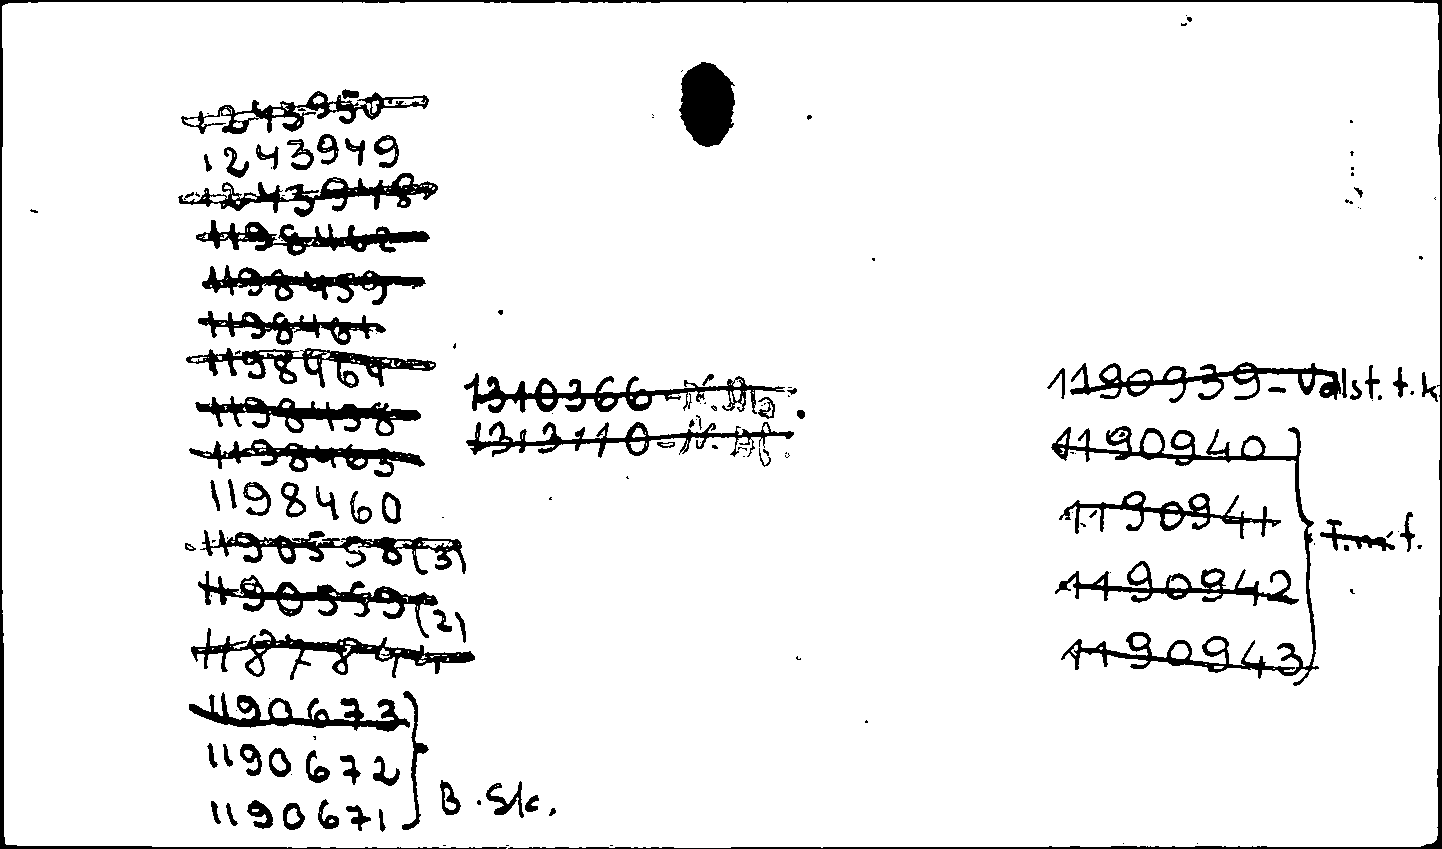 1243950
1243949
1243948
1198462
1198459
1198461
1198464
1198458
1198463
1198460
1190558 (3)
1190559 (2)
1187844
1190673
1190672
1190671
B. Sk.
1310366 -
1313110 -
1190939 - Valst. t.k
1190940
1190941
1190942
1190943
T.m.f.